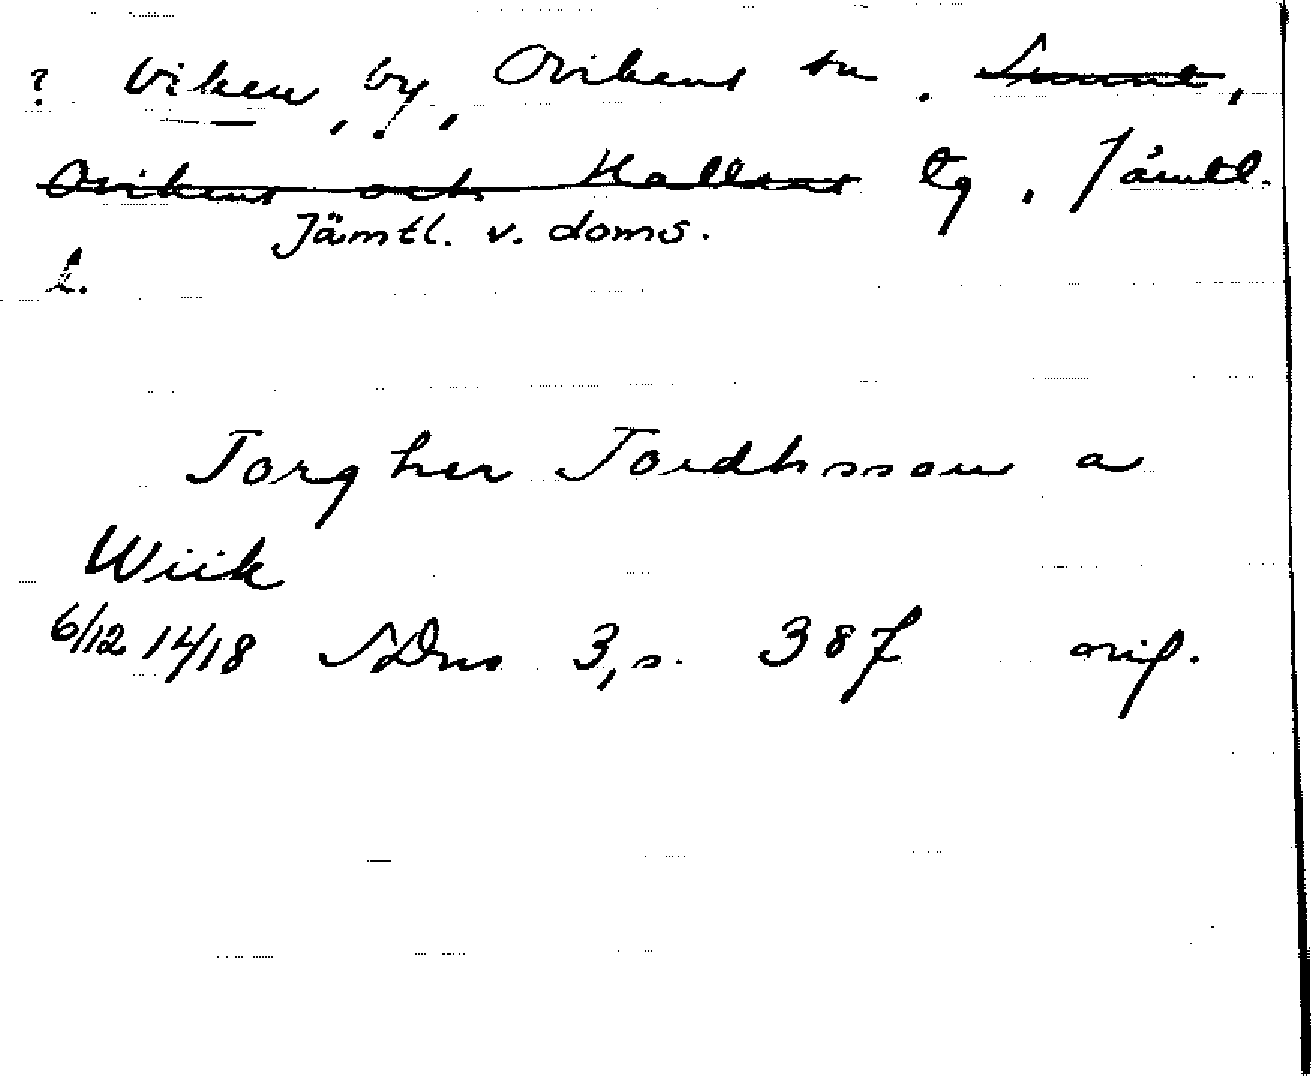 ? Viken, by, Ovikens sn. Sunne,
Ovikens och Hallens tg, Jämtl.
Jämtl. v. doms.
l.
Torgher Tordhsson a
Wiik
6/12 1418 SDns 3, s. 387 orig.